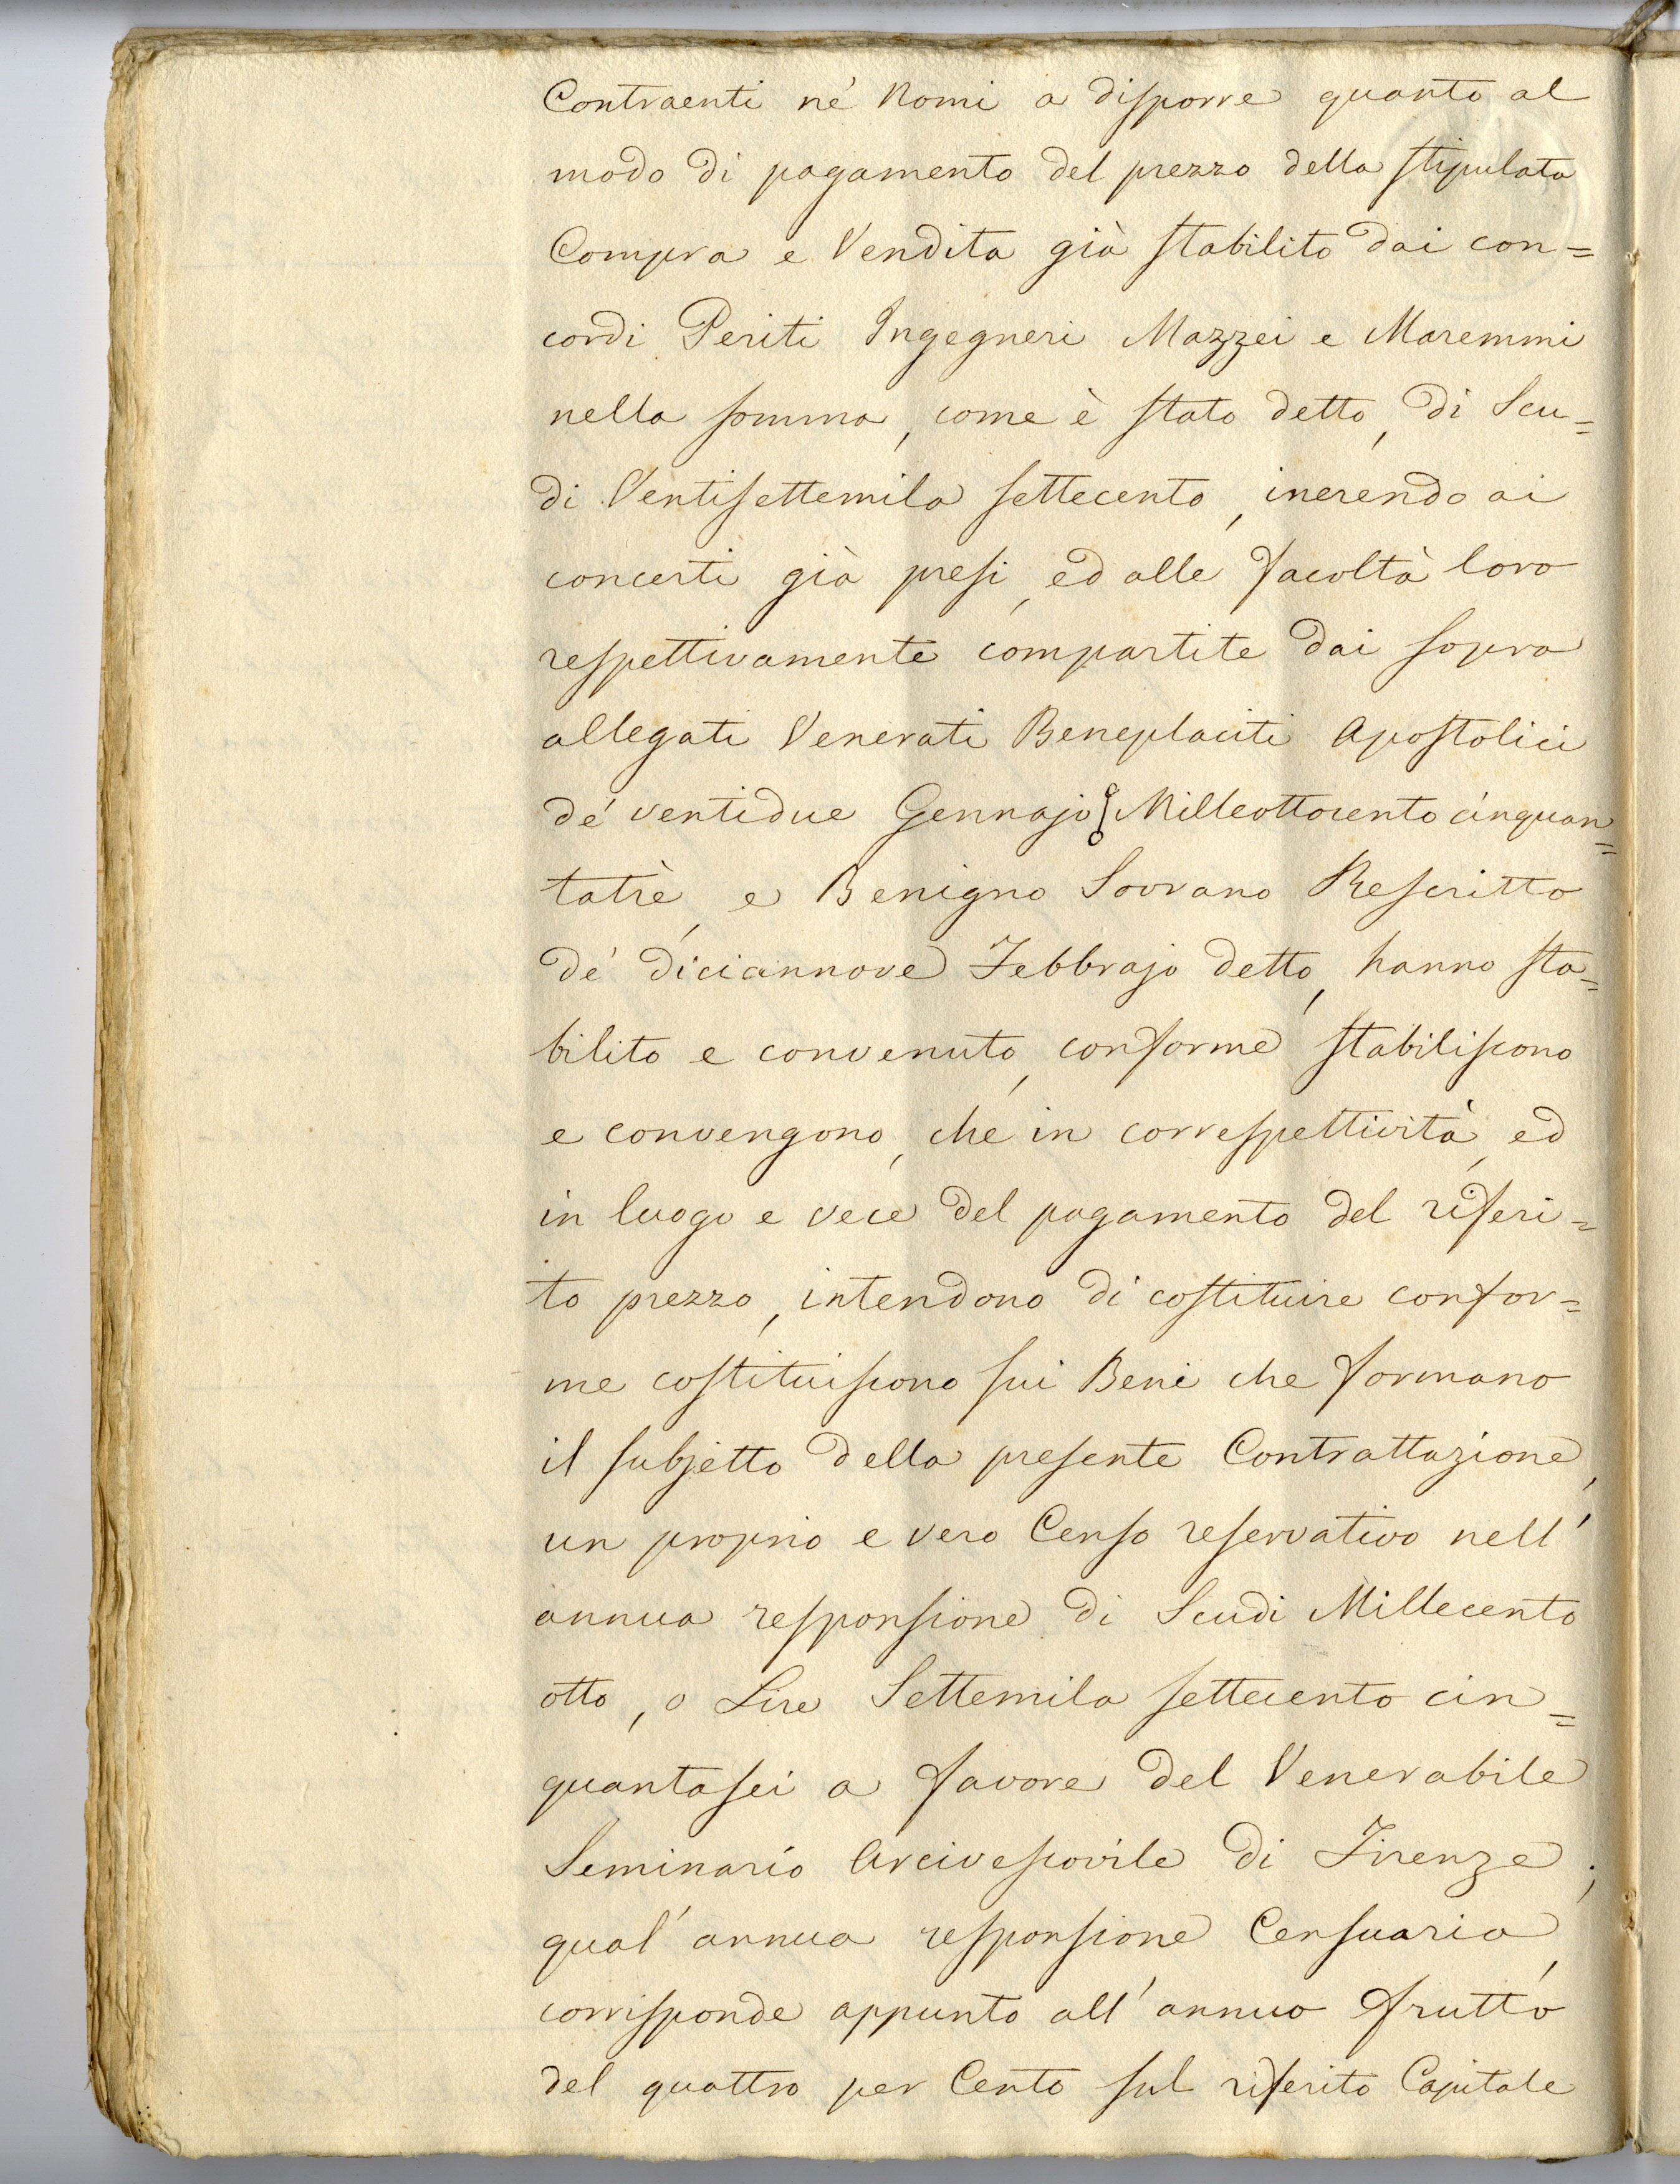 Contraenti né Nomi a disporre quanto al
modo di pagamento del prezzo della stipulata
Compra e Vendita già stabilito dai con=
cordi Periti Ingegneri Mazzei e Maremmi
nella somma, come è stato detto, di Scu=
di Ventisettemila settecento, inerendo ai
concerti già presi, ed alle facoltà loro
respettivamente compartite dai sopra
allegati Venerati Beneplaciti Apostolici
de' ventidue Gennajo Milleottocento cinquan=
tatrè, e Benigno Sovrano Rescritto
de' diciannove Febbrajo detto, hanno sta=
bilito e convenuto, conforme stabiliscono
e convengono, che in correspettività, ed
in luogo e vece del pagamento del riferi=
to prezzo, intendono di costituire confor=
me costituiscono sui Beni che formano
il subjetto della presente Contrattazione,
un proprio e vero Censo reservativo nell'
annua responsione di Scudi Millecento
otto, o Lire Settemila settecento cin=
quantasei a favore del Venerabile
Seminario Arcivescovile di Firenze;
qual' annua responsione Censuaria,
corrisponde appunto all' annuo frutto
del quattro per Cento sul riferito Capitale